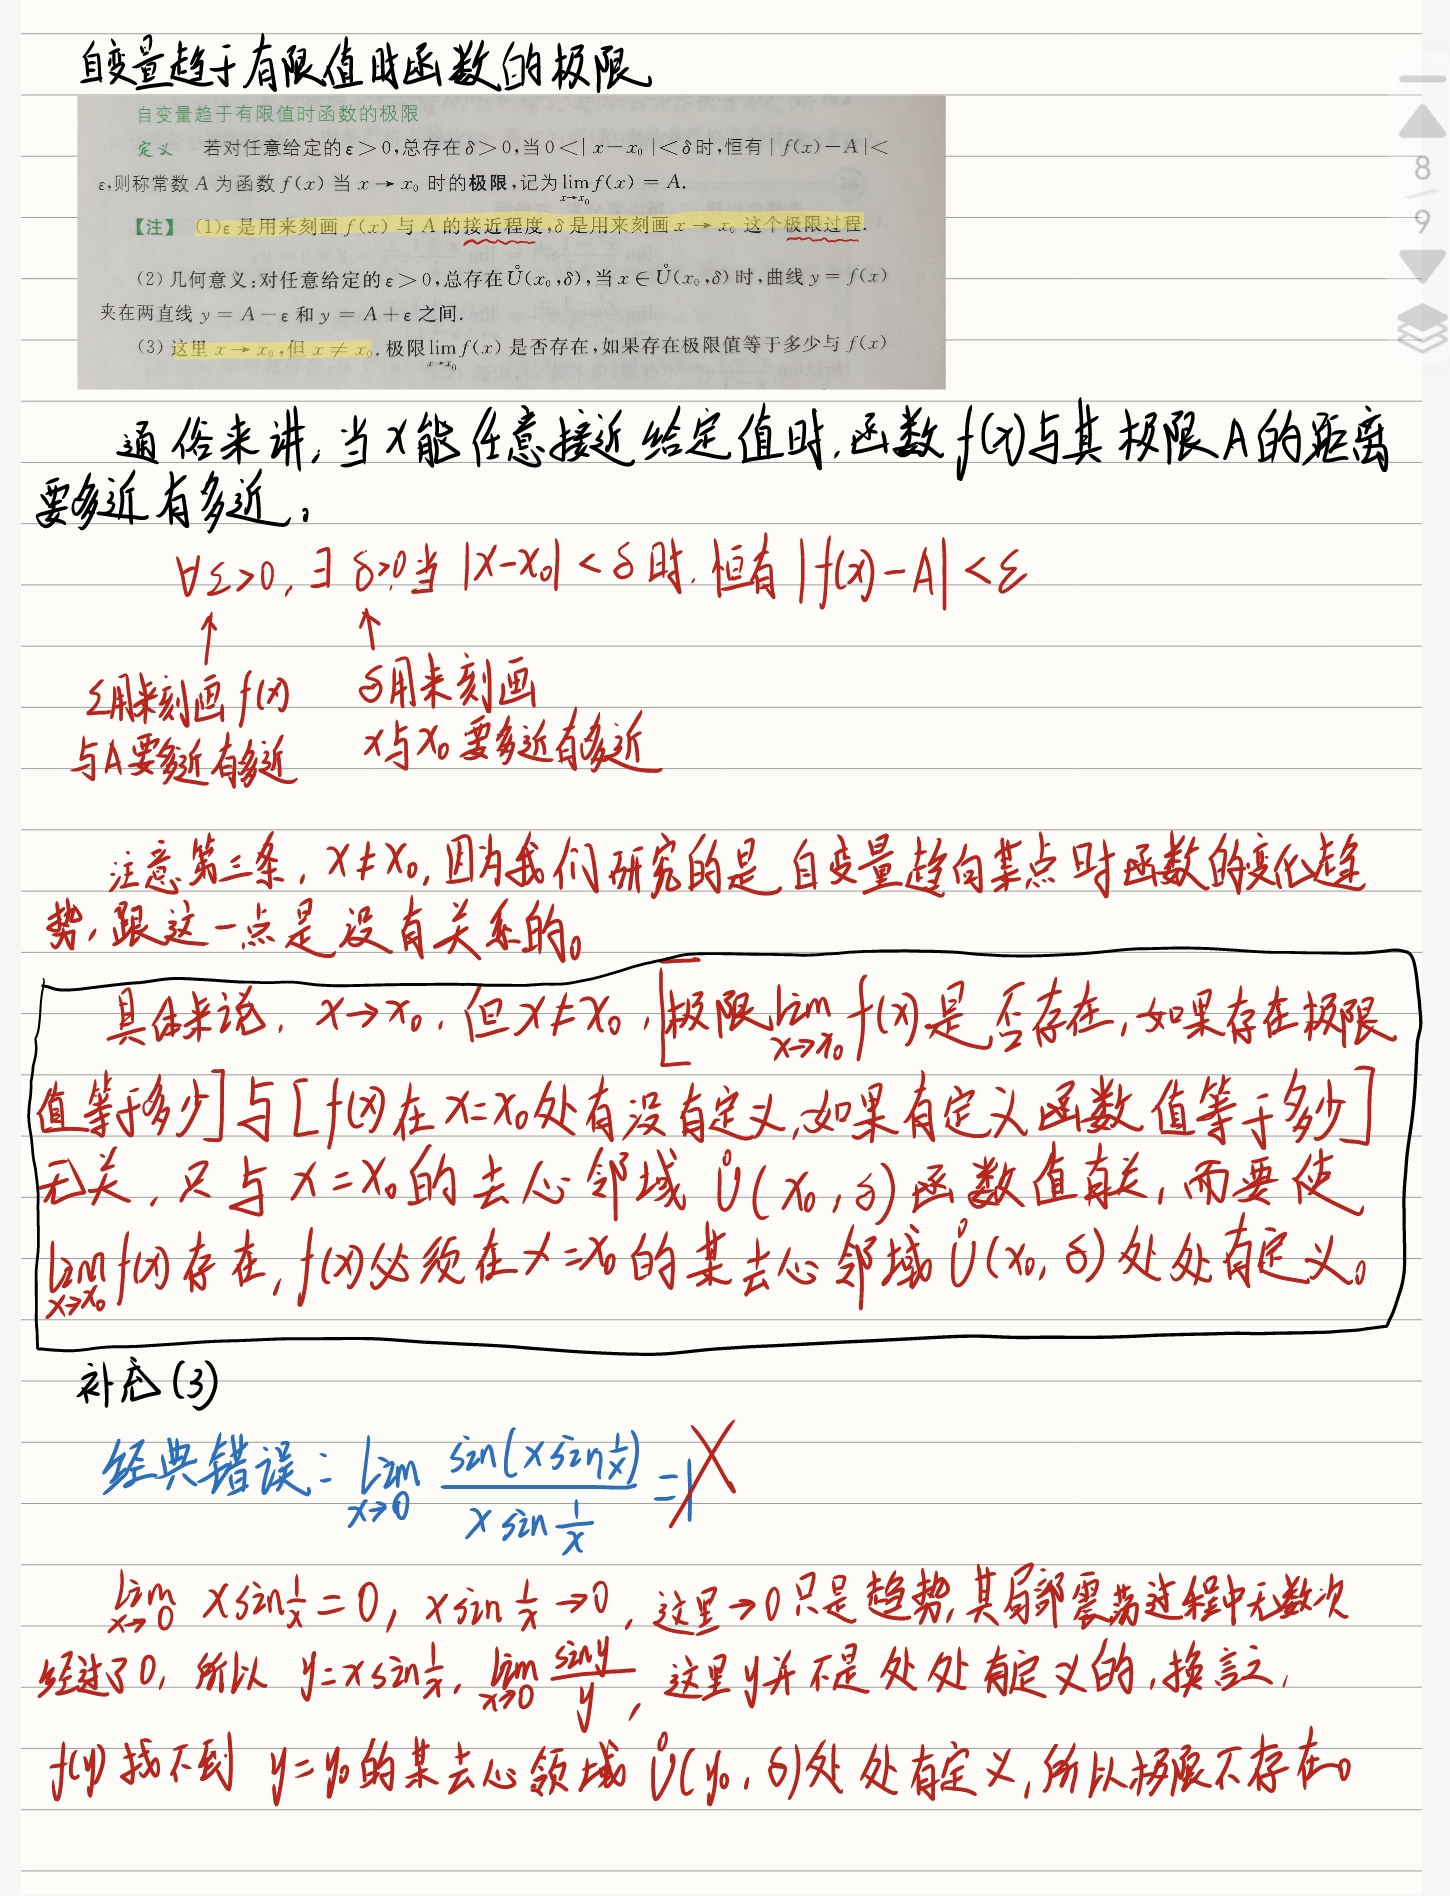 自变量趋于有限值时函数的极限
自变量趋于有限值时函数的极限
定义 若对任意给定的ε>0,总存在δ>0,当0<|x-x₀|<δ时,恒有|f(x)-A|<
ε,则称常数A为函数f(x)当x→x₀时的极限,记为lim f(x)=A.
x→x₀
【注】 (1)ε是用来刻画f(x)与A的接近程度,δ是用来刻画x→x₀这个极限过程.
(2)几何意义:对任意给定的ε>0,总存在Ů(x₀,δ),当x∈Ů(x₀,δ)时,曲线y=f(x)
夹在两直线y=A-ε和y=A+ε之间.
(3)这里x→x₀,但x≠x₀.极限lim f(x)是否存在,如果存在极限值等于多少与f(x)
x→x₀
通俗来讲,当x能任意接近给定值时,函数f(x)与其极限A的距离
要多近有多近。
∀ε>0,∃δ>0,当|x-x₀|<δ时,恒有|f(x)-A|<ε
↑ ↑
ε用来刻画f(x) δ用来刻画
与A要多近有多近 x与x₀要多近有多近
注意第三条,x≠x₀,因为我们研究的是自变量趋向某点时函数的变化趋
势,跟这一点是没有关系的。
具体来说,x→x₀,但x≠x₀,[极限lim f(x)是否存在,如果存在极限
x→x₀
值等于多少]与[f(x)在x=x₀处有没有定义,如果有定义函数值等于多少]
无关,只与x=x₀的去心邻域Ů(x₀,δ)函数值有关,而要使
lim f(x)存在,f(x)必须在x=x₀的某去心邻域Ů(x₀,δ)处处有定义。
x→x₀
补充(3)
经典错误:lim sin(x sin 1/x) / (x sin 1/x) =1 ×
x→0
lim x sin 1/x =0, x sin 1/x →0,这里→0只是趋势,其局部震荡过程中无数次
x→0
经过了0,所以 y=x sin 1/x, lim sin y / y,这里y并不是处处有定义的,换言之,
x→0
f(y)找不到y=y₀的某去心领域Ů(y₀,δ)处处有定义,所以极限不存在。
8
9